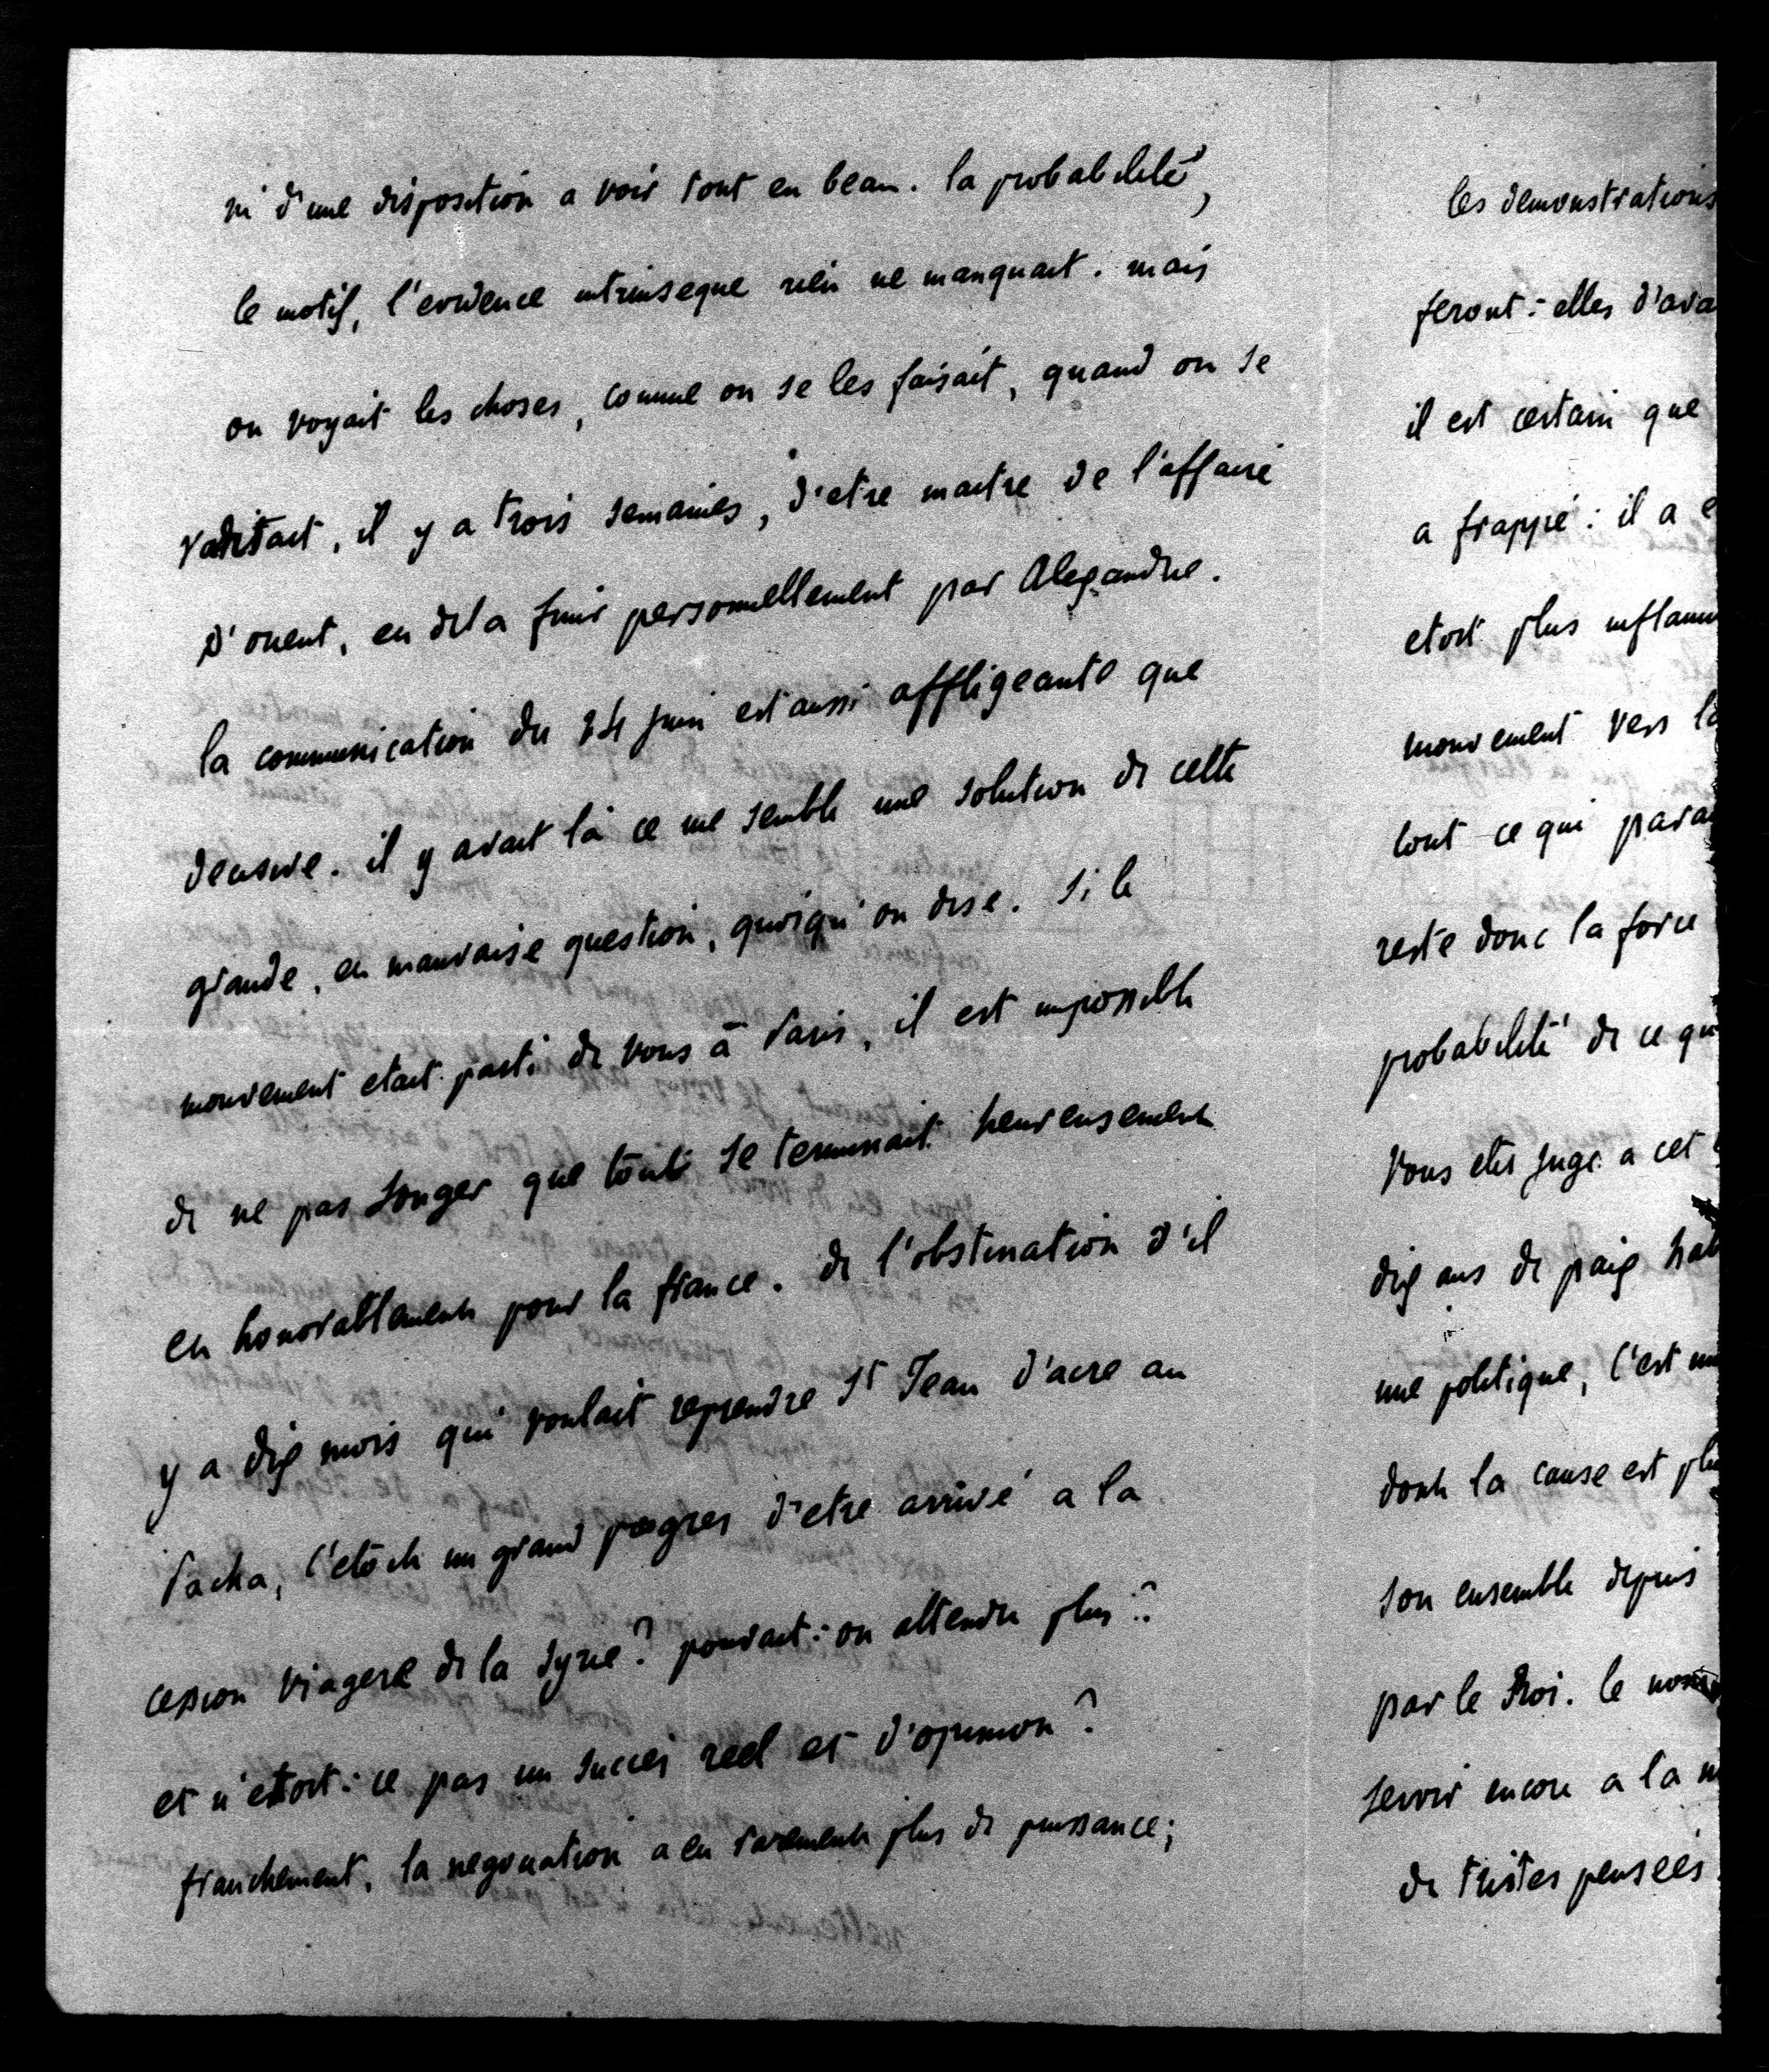 ni d'une disposition a voir tout en beau. la probabilité,
le motif, l'evidence intrinseque rien ne manquait. mais
on voyait les choses, comme on se les faisait, quand on se
il y a trois semaines, d'etre maitre de l'affaire
d'orient, en finir personnellement par Alexandre.
la communication du 24 juin est aussi affligeante que
decisive. il y avait là ce me semble une solution de cette
grande, et mauvaise question, quoiqu'on dise. si le
mouvement etait parti de vous à Paris, il est impossible
de ne pas songer que tout se terminait heureusement
et honorablement pour la france. de l'obstination d'il
y a dix mois qui voulait reprendre St Jean d'acre au
Pacha, c'etoit un grand progres d'etre arrivé a la
cession viagere de la Syrie? pouvait-on attendre plus?
et n'etoit-ce pas un succes reel et d'opinion?
franchement, la negociation a eu rarement plus de puissance;
les demonstrations
feront-elles d'ava
il est certain que
a frappé: il a
etoit plus inflam
mouvement vers la
tout ce qui para
reste donc la force
probabilité de ce qu
Vous etes juge a cet
dix ans de paix
une politique, c'est un
dont la cause est plu
son ensemble depuis
par le Roi. le
servir encore a la
de tristes pensées